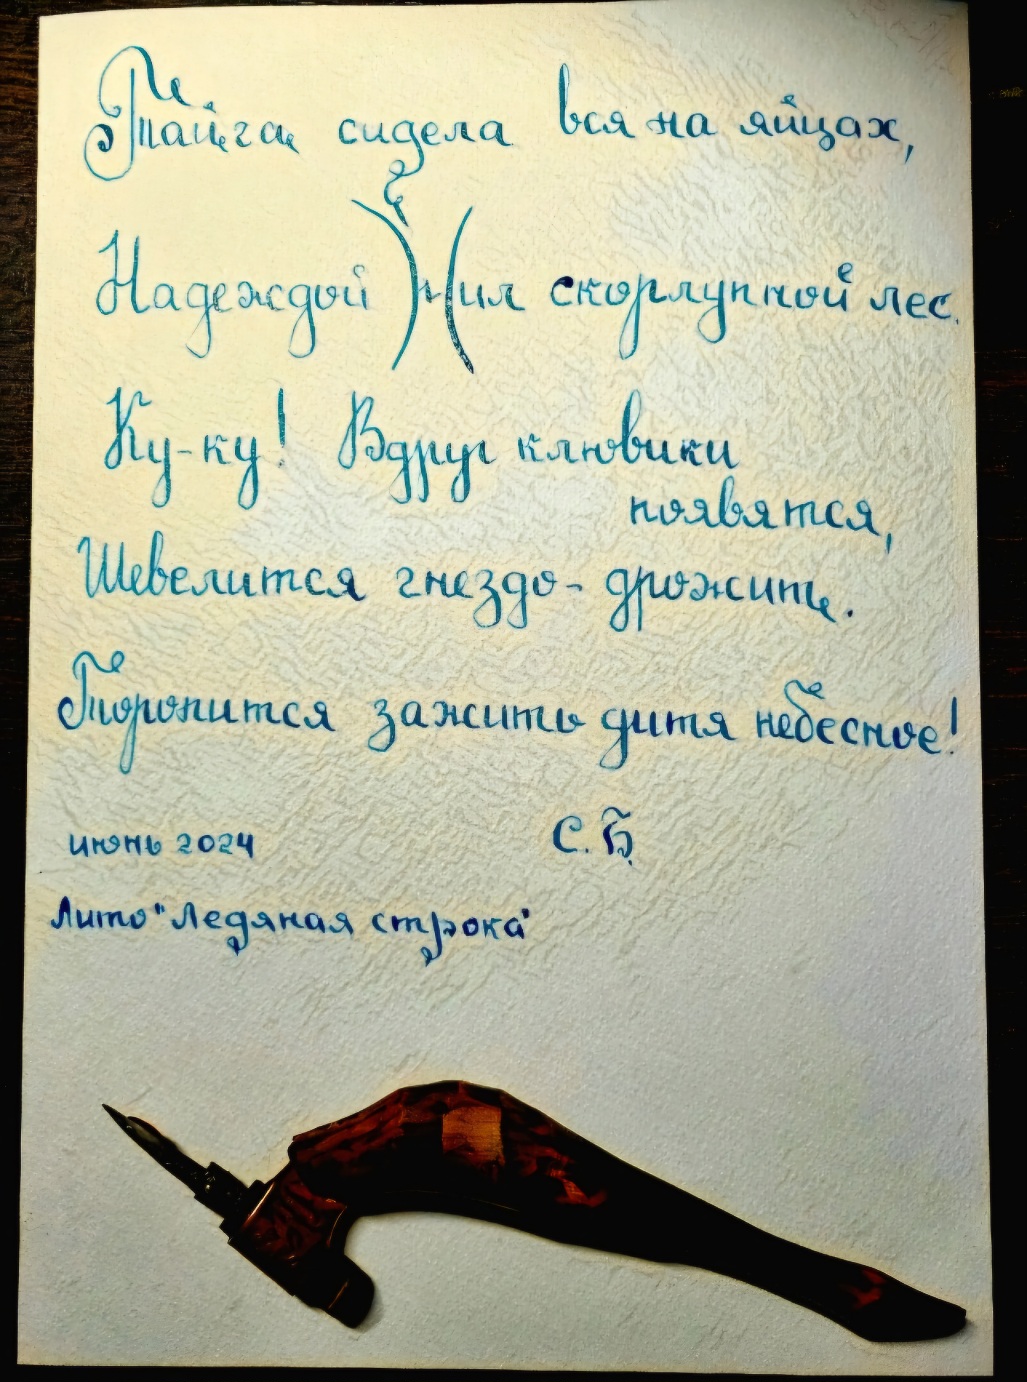 Тайга сидела вся на яйцах,
Надеждой жил скорлупной лес.
Ку-ку! Вдруг клювики
появятся,
Шевелится гнездо - дрожит.
Торопится зажить дитя небесное!
июнь 2024 С.Б.
Лито "Ледяная строка"